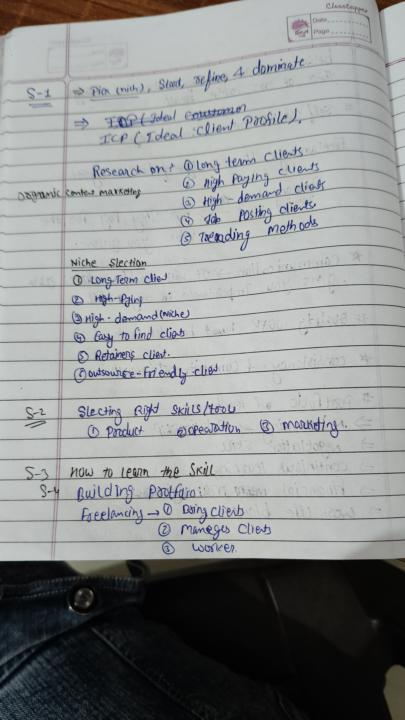 Classtopper
Date
Page
S-1 ⇒ Pick (nich), Start, Refine, & dominate
⇒ ICP (Ideal customer
ICP (Ideal Client Profile).
Research on + ① Long term clients
Organic content marketing
② High Paying clients
③ High-demand clients
④ Job Posting clients
⑤ Trending Methods
Niche Slection
① Long Term clien
② High-Paying
③ High-demand (Niche)
④ Easy to find clients
⑤ Retainers client.
⑥ outsource-Friendly client
S-2 Slecting Right Skills/tools
① Product ② opearation ③ marketing.
S-3 How to learn the Skill
S-4 Building Portfolio:
Freelancing → ① Doing clients
② Maneges Clients
③ Worker.